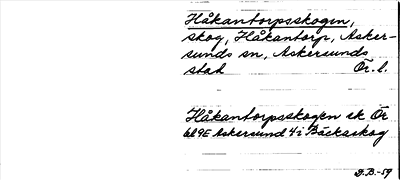 Håkantorpsskogen,
skog, Håkantorp, Asker-
sunds sn, Askersunds
stad Ör. l.
Håkantorpsskogen ek Ör
bl 9E Askersund 4 i Bäckaskog
D.B.-59